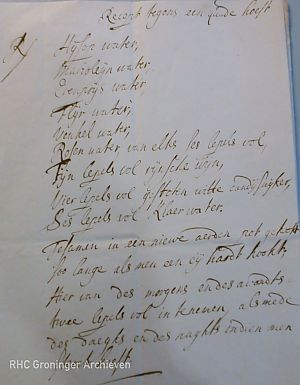 Recept tegens een quade hoest
R/ Hysop water,
water,
Eerenprys water,
Flijr water,
Venkel water,
Rosen water van elks ses lepels vol,
Tijn lepels vol rijnsche wijn,
Vier lepels vol gestoten witte candijsuijker,
Ses lepels vol klaer water.
Tesamen in een nieuwe aerden pot gekookt
Soo lange als men een eij hardt kookt,
Hier van des morgens ende s avondts
twee lepels vol in te nemen alsmede
des daeghs ende s naghts indien men
RHC Groninger Archieven